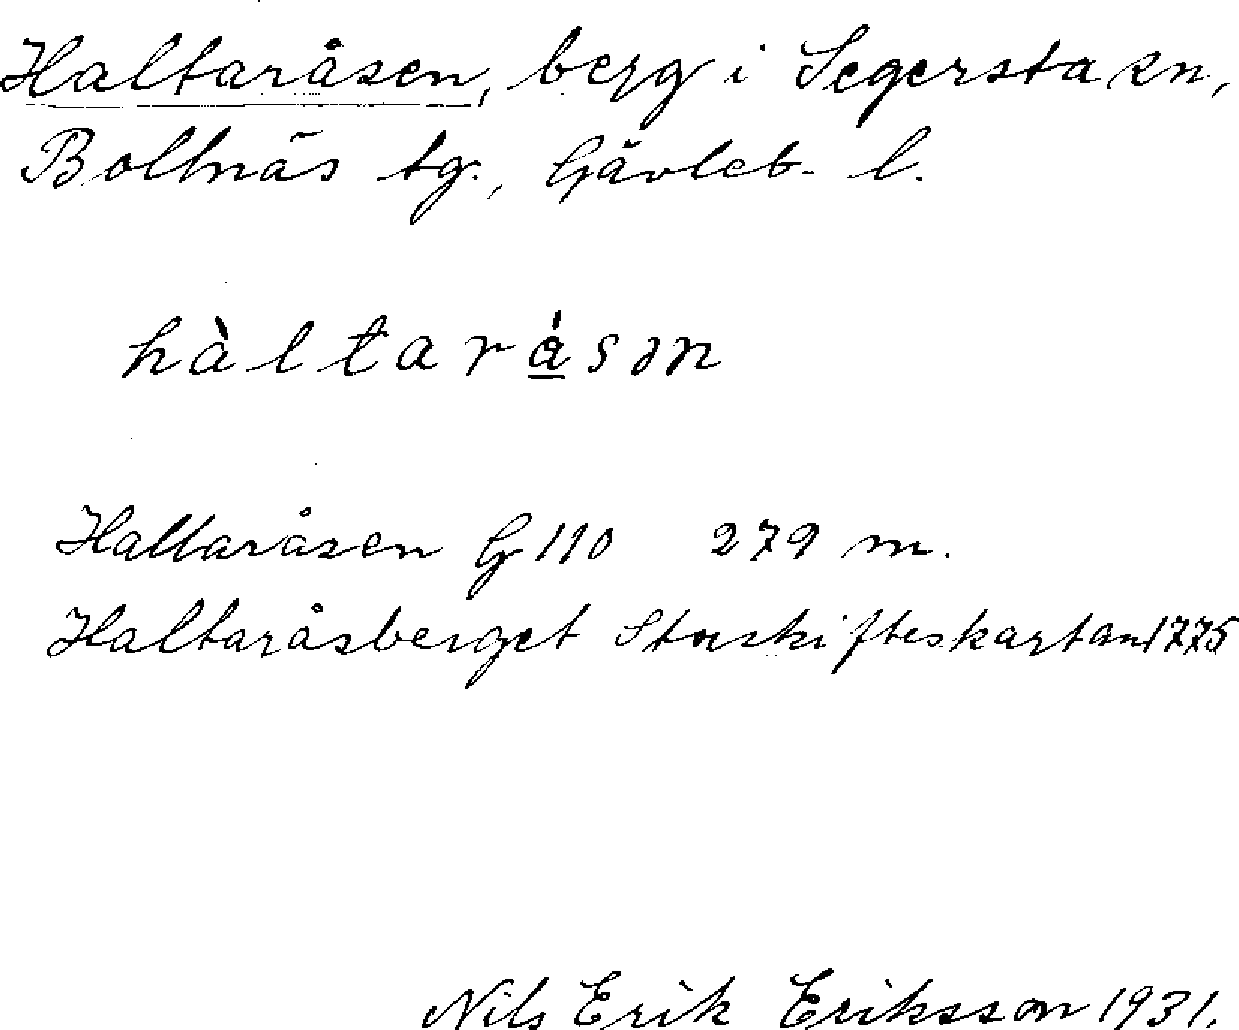 Haltaråsen, berg i Segersta sn,
Bollnäs tg., Gävleb. l.
hàltarǻsən
Haltaråsen G 110 279 m.
Haltaråsberget Storskifteskartan 1775
Nils Erik Eriksson 1931.